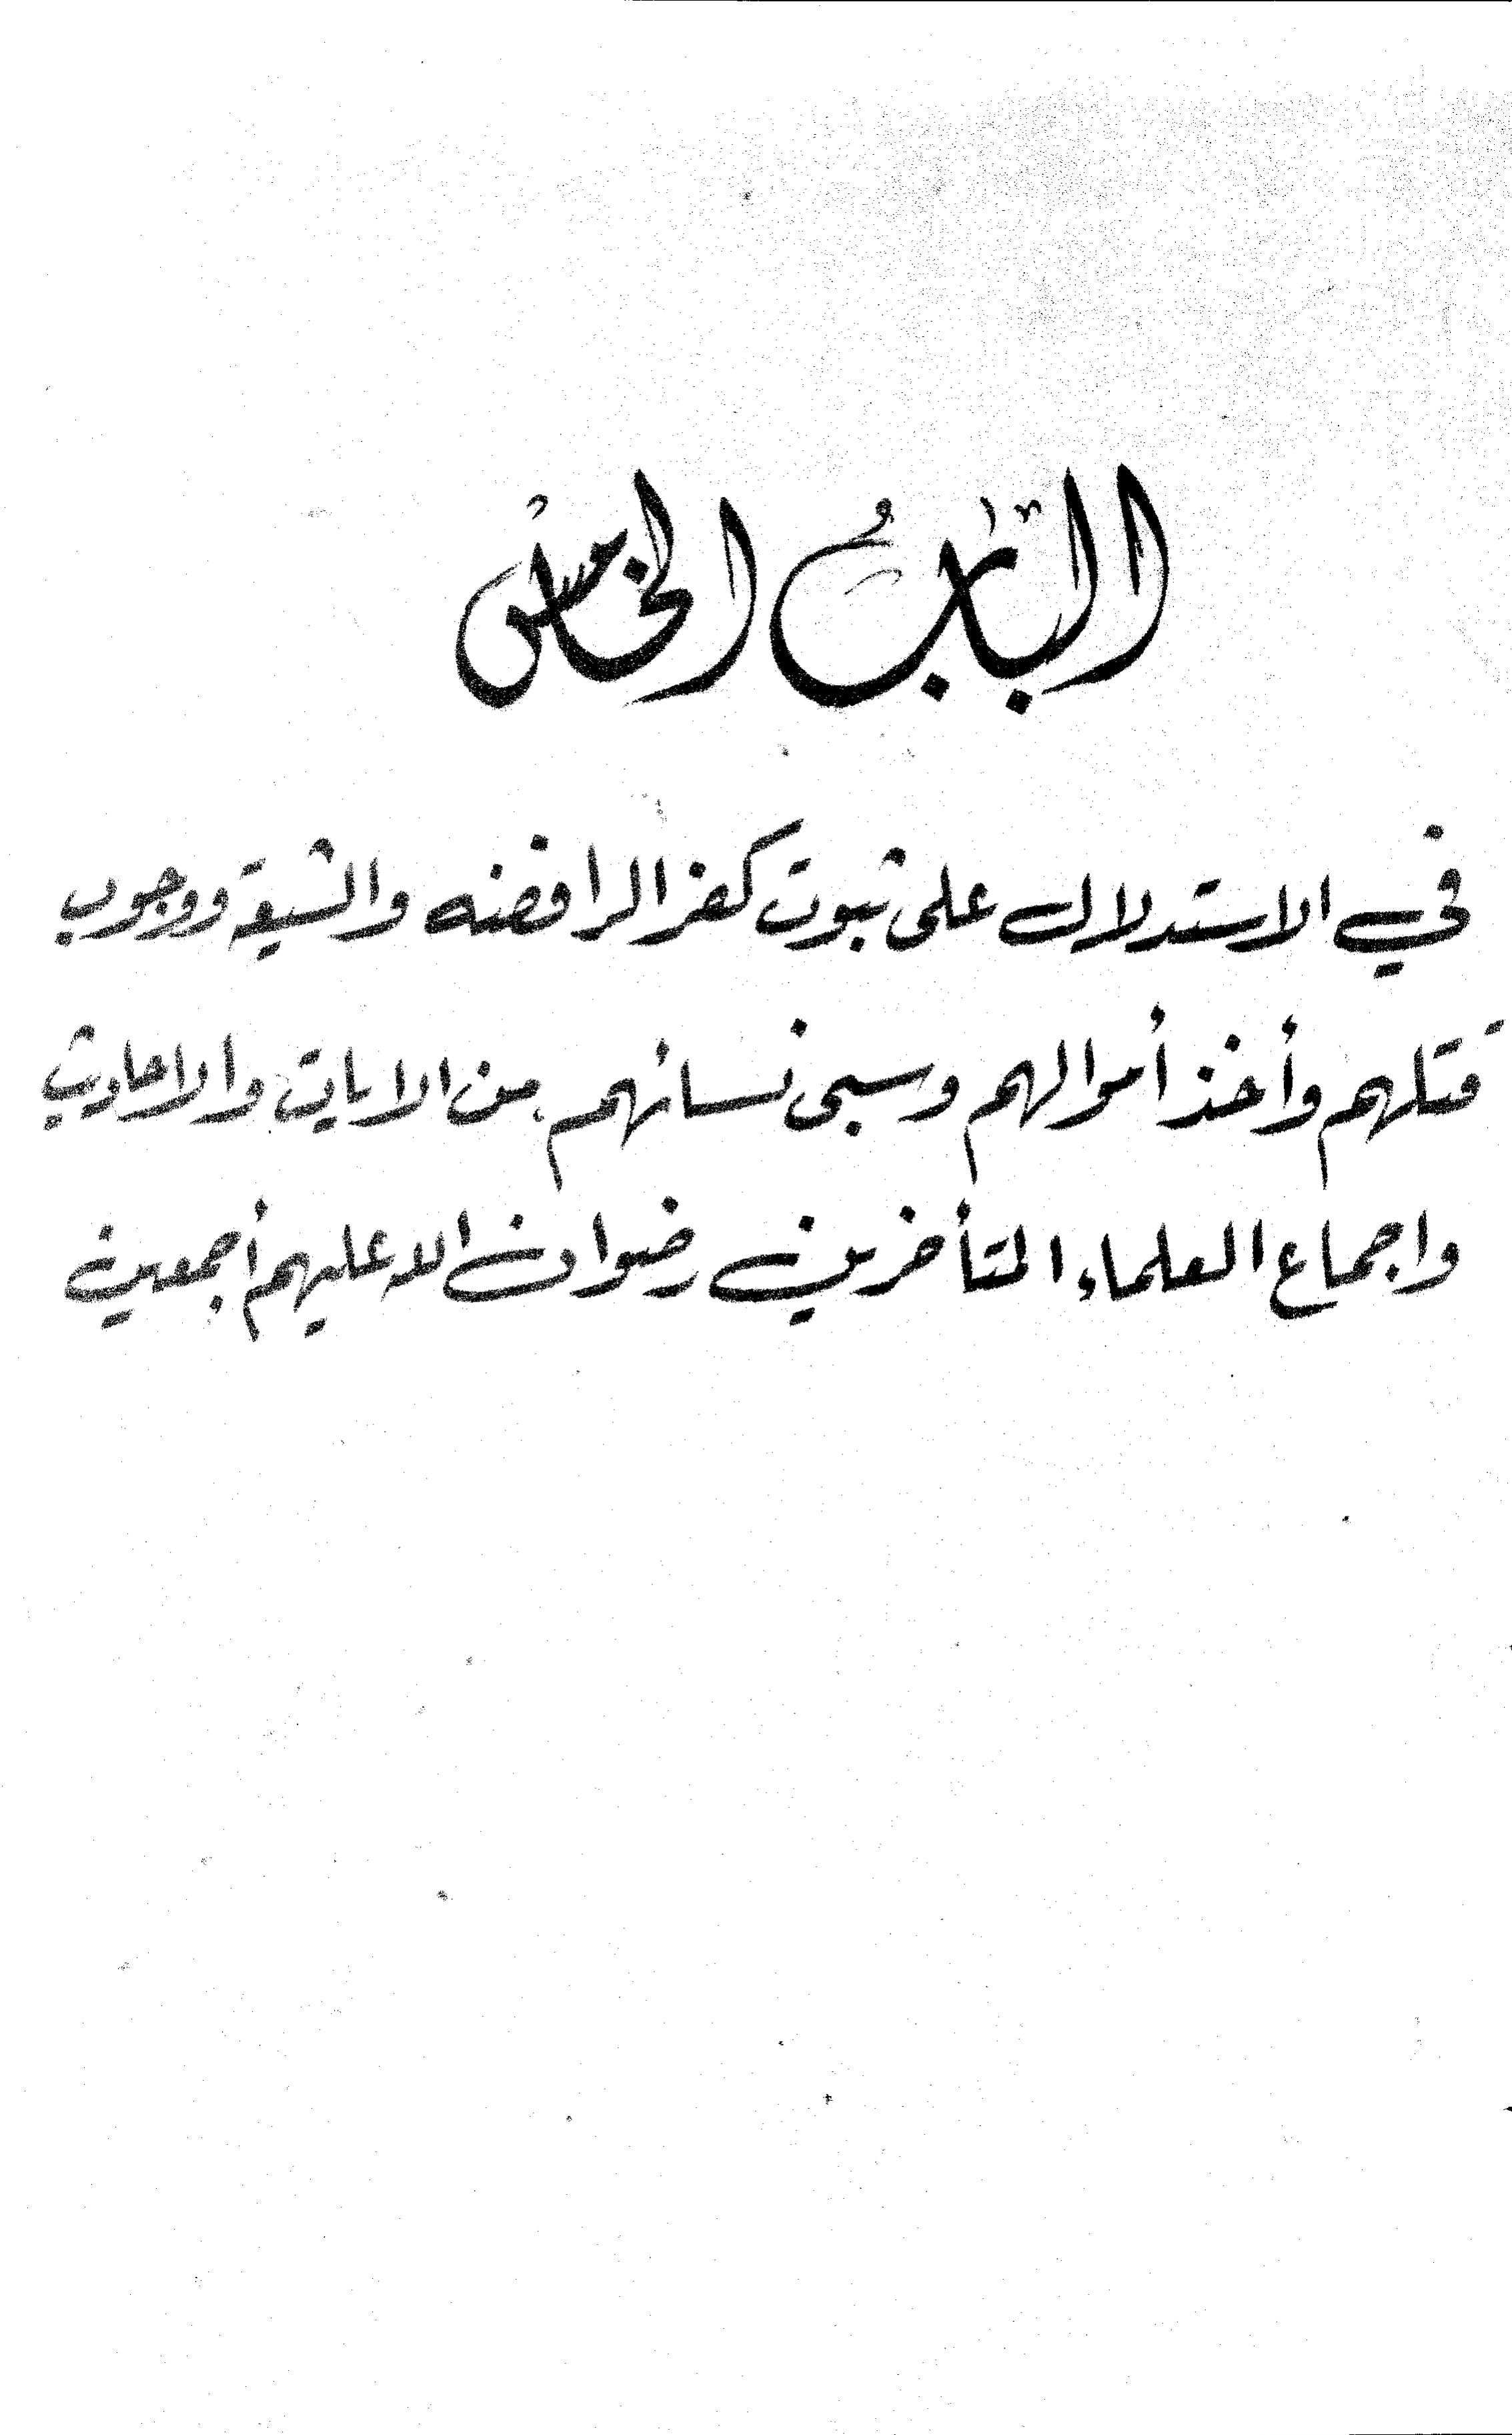 الباب الخامس
في الاستدلال على ثبوت كفر الرافضه والشيعة ووجوب
قتلهم وأخذ أموالهم وسبى نسائهم من الايات والاحاديث
واجماع العلماء المتأخرين رضوان الله عليهم أجمعين